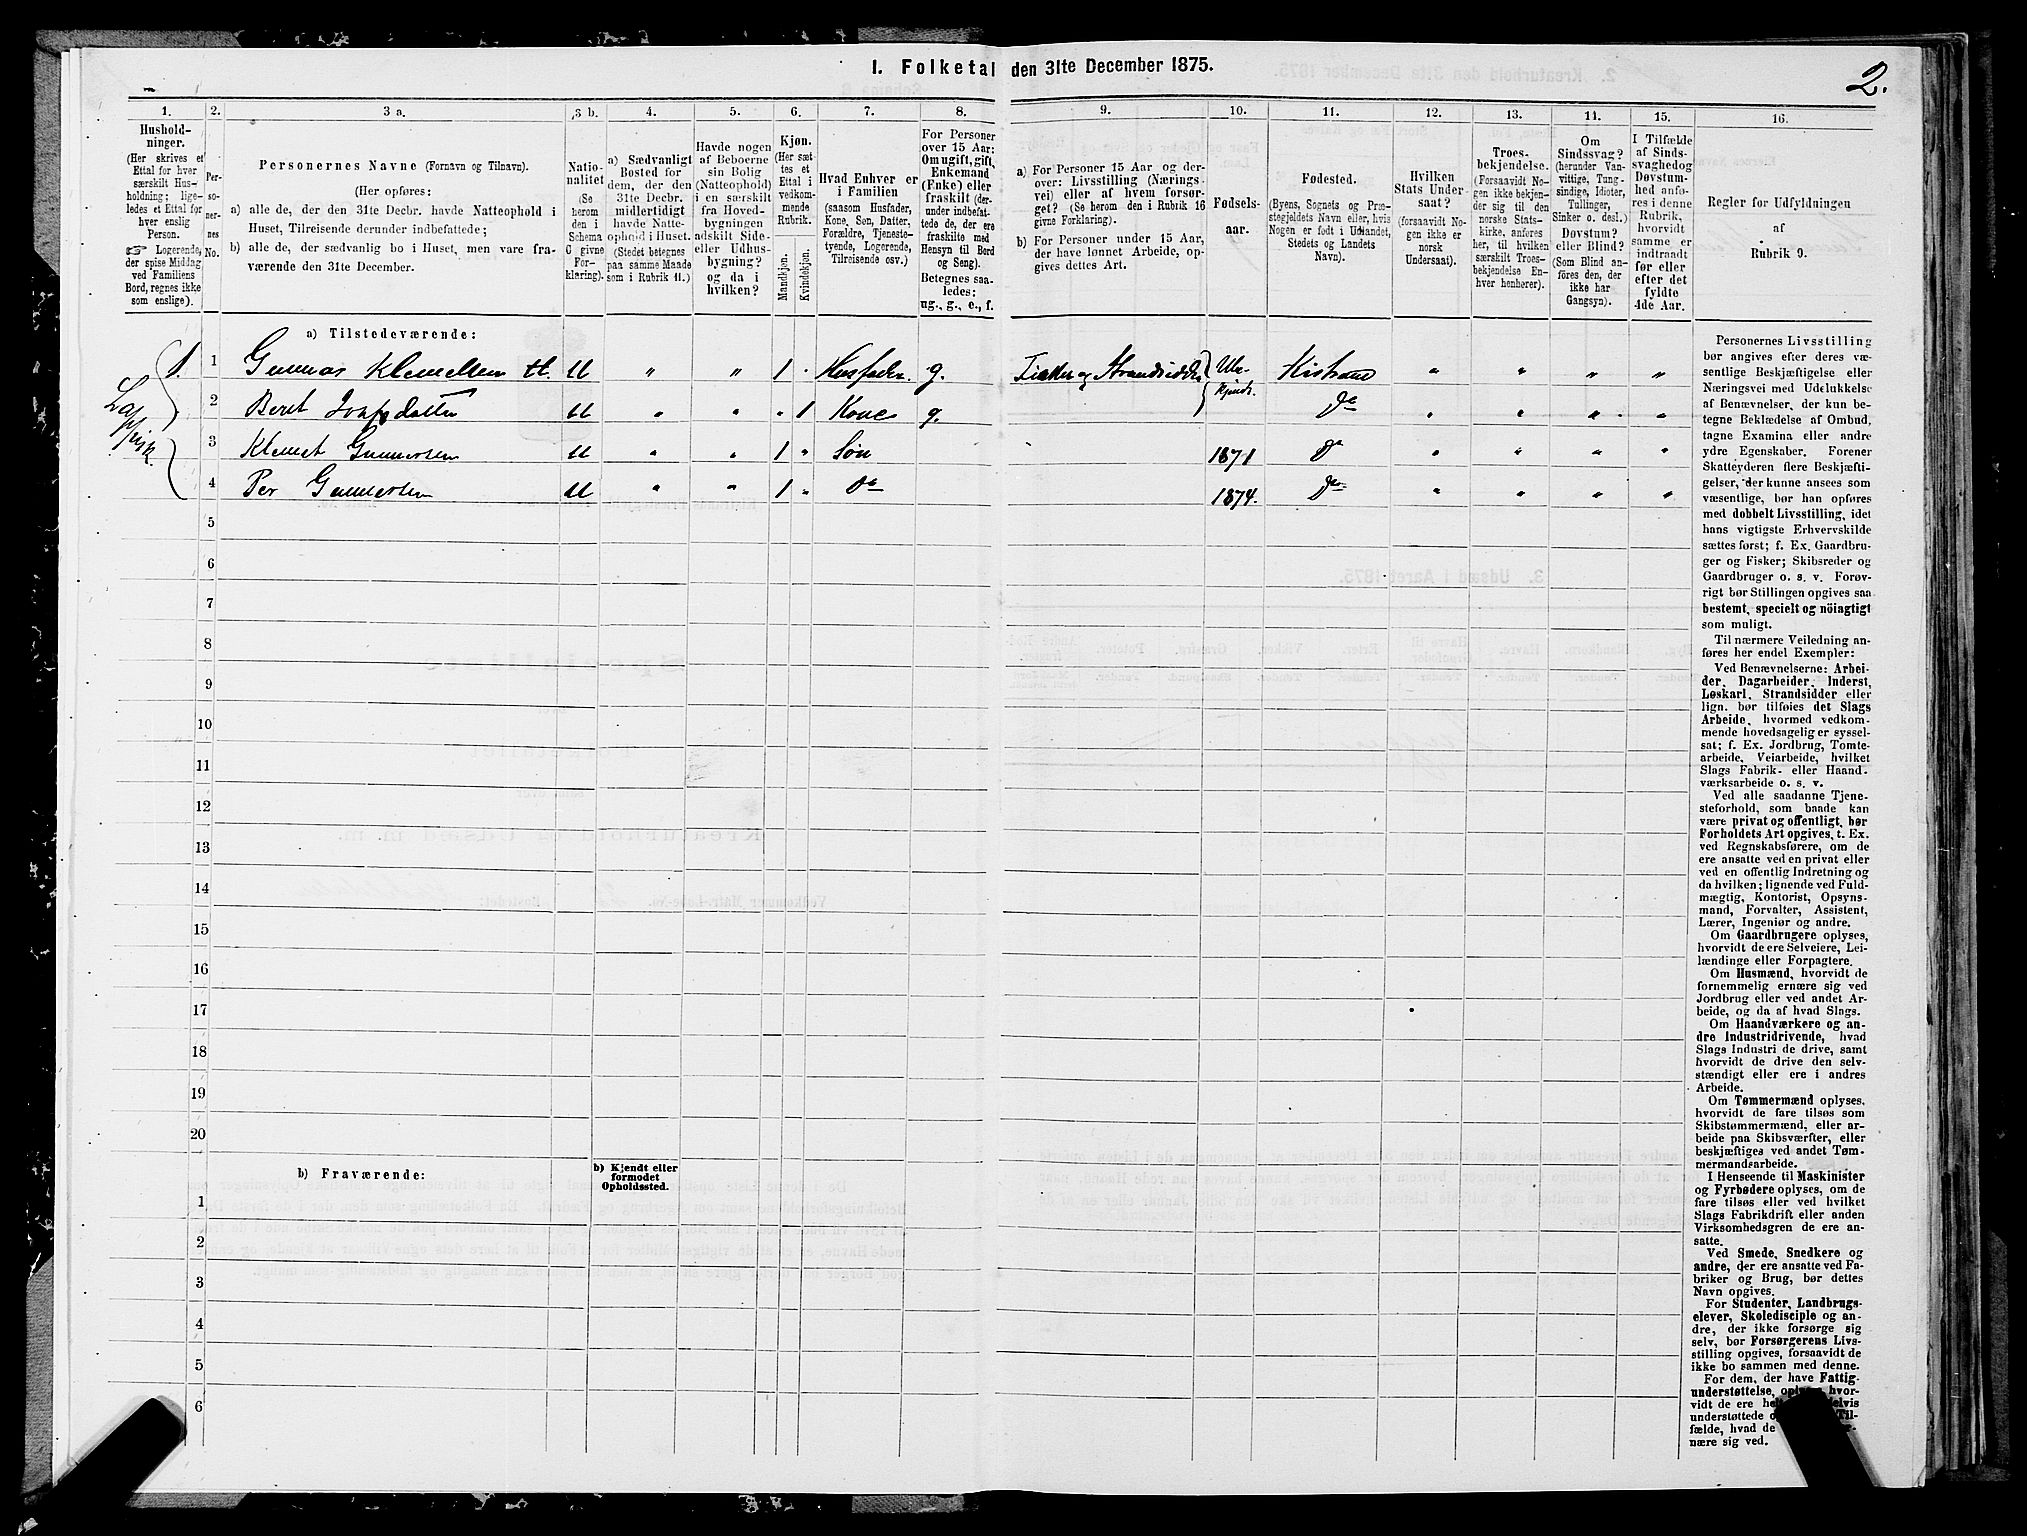 I. Folketal den 31te December 1875.
2.
1.
Hushold-
ninger.
(Her skrives et
Ettal for hver
særskilt Hus-
holdning; lige-
ledes et Ettal for
hver enslig
Person.
Logerende,
der spise Middag
ved Familiens
Bord, regnes ikke
som enslige).
2.
Per-
so-
ner-
nes
No.
3 a.
Personernes Navne (Fornavn og Tilnavn).
(Her opføres:
a) alle de, der den 31te Decbr. havde Natteophold i
Huset, Tilreisende derunder indbefattede;
b) alle de, der sædvanlig bo i Huset, men vare fra-
værende den 31te December.
3 b.
Natio-
nalitet
(Se
herom
den i
Schema
G givne
For-
klaring).
4.
a) Sædvanligt
Bosted for
dem, der den
31te Decbr.
midlertidigt
havde Natte-
ophold i Huset.
(Stedet betegnes
paa samme Maade
som i Rubrik 11.)
5.
Havde nogen
af Beboerne
sin Bolig
(Natteophold)
i en særskilt
fra Hoved-
bygningen
adskilt Side-
eller Udhus-
bygning?
og da i
hvilken?
6.
Kjøn.
(Her sæt-
tes et
Ettal i
vedkom-
mende
Rubrik.
Mandkjøn.
Kvindekjøn.
7.
Hvad Enhver er
i Familien
(saasom Husfader,
Kone, Søn, Datter,
Forældre, Tjeneste-
tyende, Logerende,
Tilreisende osv.)
8.
For Personer
over 15 Aar:
Om ugift, gift,
Enkemand
(Enke) eller
fraskilt (der-
under indbefat-
tede de, der ere
fraskilte med
Hensyn til Bord
og Seng).
Betegnes saa-
ledes:
ug., g., e., f.
9.
a) For Personer 15 Aar og der-
over: Livsstilling (Nærings-
vei) eller af hvem forsør-
get? (Se herom den i Rubrik 16
givne Forklaring).
b) For Personer under 15 Aar,
der have lønnet Arbeide, op-
gives dettes Art.
10.
Fødsels-
aar.
11.
Fødested.
(Byens, Sognets og Præ-
stegjeldets Navn eller, hvis
Nogen er født i Udlandet,
Stedets og Landets
Navn).
12.
Hvilken
Stats Under-
saat?
(forsaavidt No-
gen ikke er
norsk
Undersaat).
13.
Troes-
bekjendelse.
(Forsaavidt No-
gen ikke bekjen-
der sig til den
norske Stats-
kirke, anføres
her, til hvilken
særskilt Troes-
bekjendelse En-
hver henhører).
14.
Om
Sindssvag?
(herunder Van-
vittige, Tung-
sindige, Idioter,
Tullinger,
Sinker o. desl.)
Døvstum?
eller Blind?
(Som Blind an-
føres den, der
ikke har
Gangsyn).
15.
I Tilfælde
af Sinds-
svaghed og
Døvstum-
hed anfø-
res i denne
Rubrik,
hvorvidt
samme er
indtraadt
før eller
efter det
fyldte
4de Aar.
16.
Regler for Udfyldningen
af
Rubrik 9.
a) Tilstedeværende:
Lappisk
1. 1 " " 1 Husfader. g. Fisker og Strandsidder Kistrand " " " "
2 Beret " " " 1 Kone g. Do " " " "
3 Klemet Gunnersen " " 1 " Søn 1871 Do " " " "
4 Per Gunnersen " " 1 " Do 1874. Do " " " "
5
6
7
8
9
10
11
12
13
14
15
16
17
18
19
20
b) Fraværende:
b) Kjendt eller
formodet
Opholdssted.
1
2
3
4
5
6
Personernes Livsstilling
bør angives efter deres væ-
sentlige Beskjæftigelse eller
Næringsvei med Udelukkelse
af Benævnelser, der kun be-
tegne Beklædelse af Ombud,
tagne Examina eller andre
ydre Egenskaber. Forener
Skatteyderen flere Beskjæfti-
gelser, der kunne ansees som
væsentlige, bør han opføres
med dobbelt Livsstilling, idet
hans vigtigste Erhvervskilde
sættes først; f. Ex. Gaardbru-
ger og Fisker; Skibsreder og
Gaardbruger o. s. v. Forøv-
rigt bør Stillingen opgives saa
bestemt, specielt og nöiagtigt
som muligt.
Til nærmere Veiledning an-
føres her endel Exempler:
Ved Benævnelserne: Arbei-
der, Dagarbeider, Inderst,
Løskarl, Strandsidder eller
lign. bør tilføies det Slags
Arbeide, hvormed vedkom-
mende hovedsagelig er syssel-
sat; f. Ex. Jordbrug, Tomte-
arbeide, Veiarbeide, hvilket
Slags Fabrik- eller Haand-
værksarbeide o. s. v.
Ved alle saadanne Tjene-
steforhold, som baade kan
være privat og offentligt, bør
Forholdets Art opgives, t. Ex.
ved Regnskabsførere, om de
ere ansatte ved en privat eller
ved en offentlig Indretning og
da hvilken; lignende ved Fuld-
mægtig, Kontorist, Opsyns-
mand, Forvalter, Assistent,
Lærer, Ingeniør og andre.
Om Gaardbrugere oplyses,
hvorvidt de ere Selveiere, Lei-
lændinge eller Forpagtere.
Om Husmænd, hvorvidt de
fornemmelig ernære sig ved
Jordbrug eller ved andet Ar-
beide, og da af hvad Slags.
Om Haandværkere og an-
dre Industridrivende, hvad
Slags Industri de drive, samt
hvorvidt de drive den selv-
stændigt eller ere i andres
Arbeide.
Om Tømmermænd oplyses,
hvorvidt de fare tilsøs som
Skibstømmermænd, eller ar-
beide paa Skibsværfter, eller
beskjæftiges ved andet Tøm-
mermandsarbeide.
I Henseende til Maskinister
og Fyrbødere oplyses, om de
fare tilsøs eller ved hvilket
Slags Fabrikdrift eller anden
Virksomhedsgren de ere an-
satte.
Ved Smede, Snedkere og
andre, der ere ansatte ved Fa-
briker og Brug, bør dettes
Navn opgives.
For Studenter, Landbrugs-
elever, Skoledisciple og an-
dre, der ikke forsørge sig
selv, bør Forsørgerens Livs-
stilling opgives, forsaavidt de
ikke bo sammen med denne.
For dem, der have Fattig-
understøttelse, hvor-
vidt de ere
understøttede Til-
fælde, hvad de
nære sig ved.